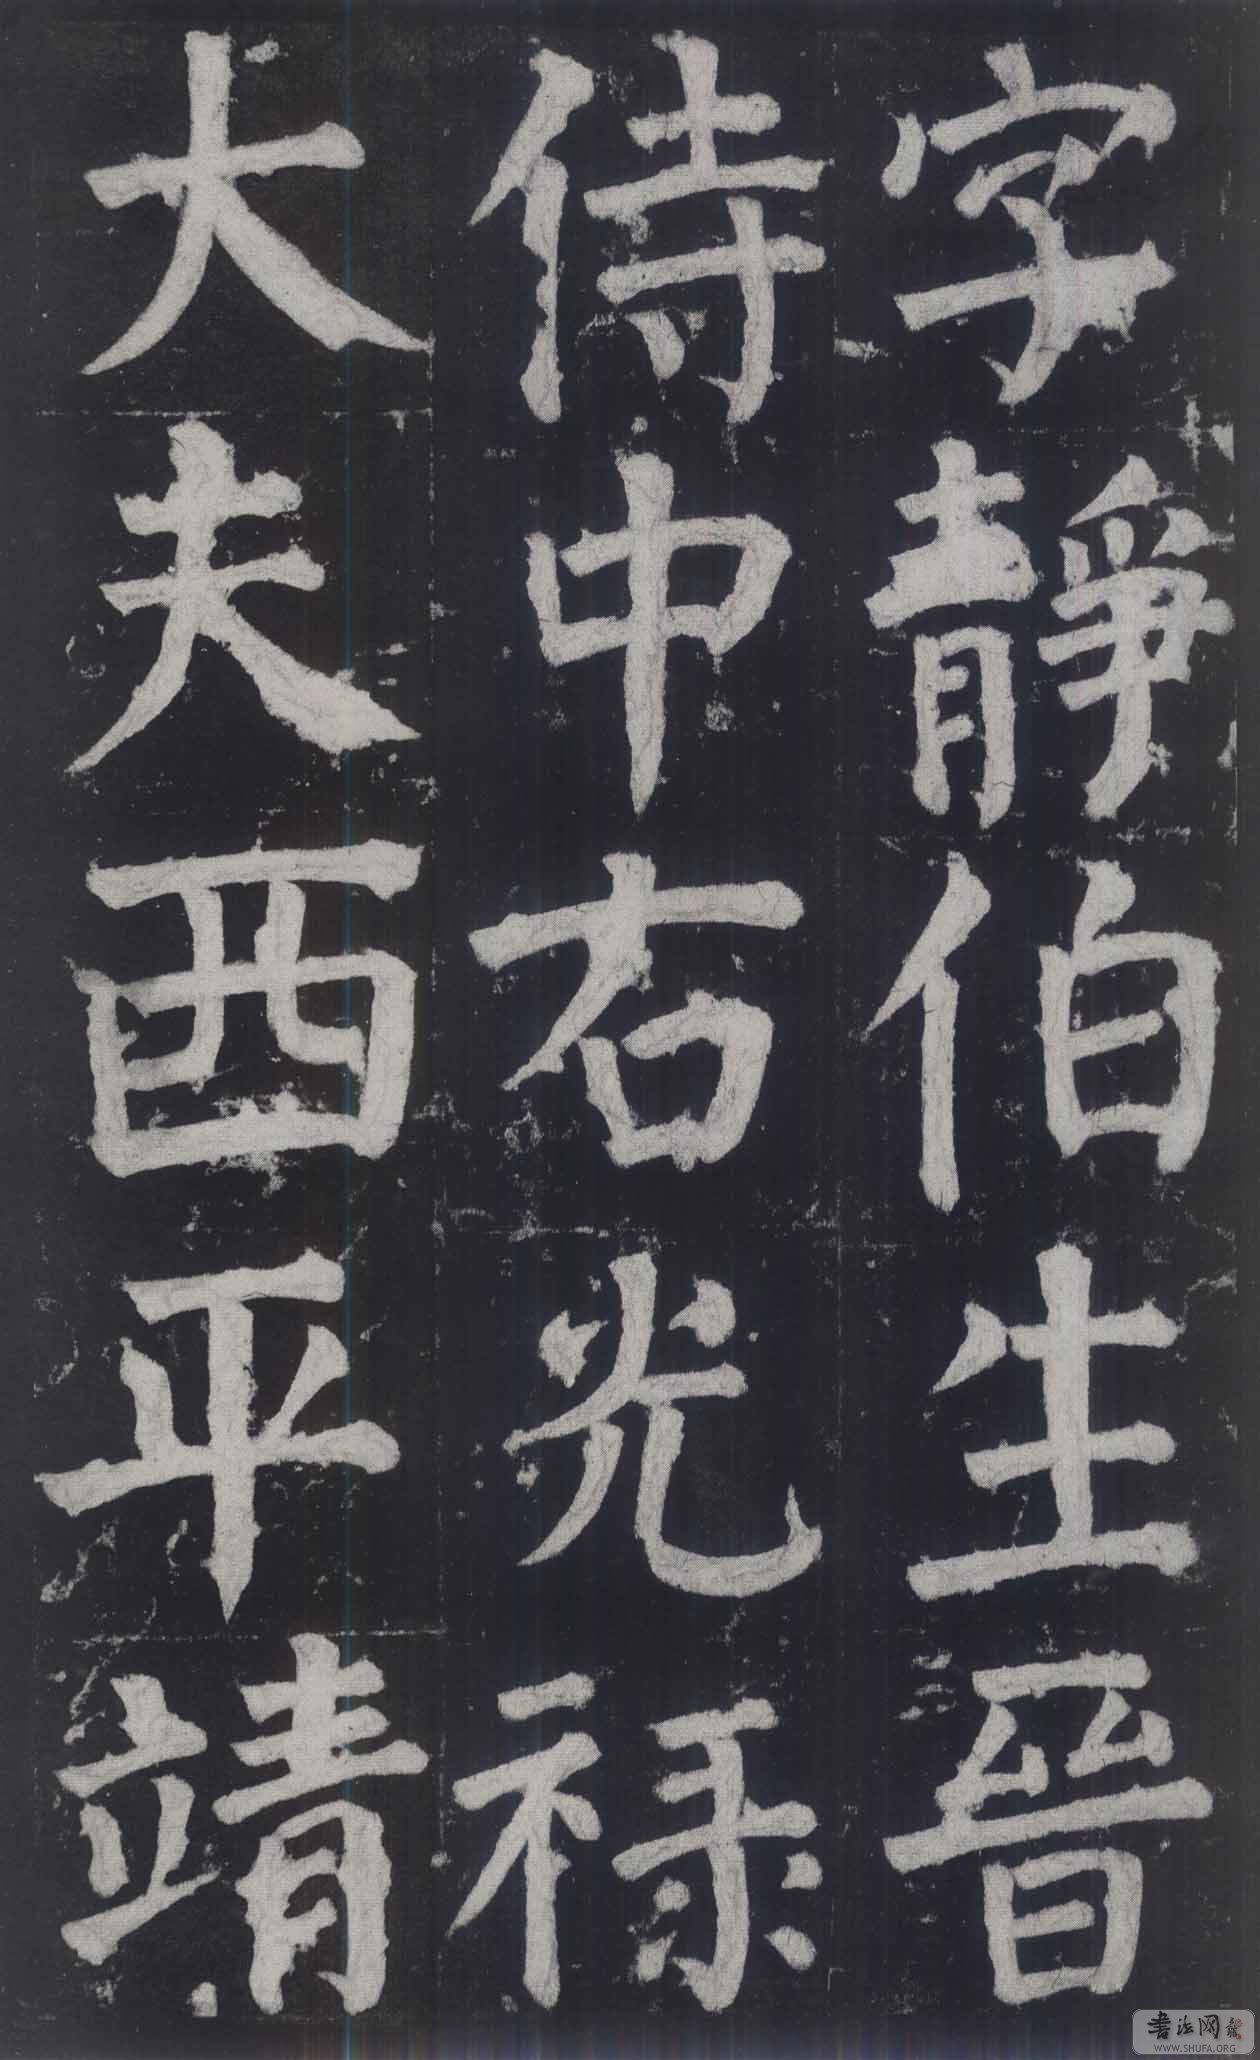 字靜伯生晉
侍中右光禄
大夫西平靖
書法网
WWW.SHUFA.ORG